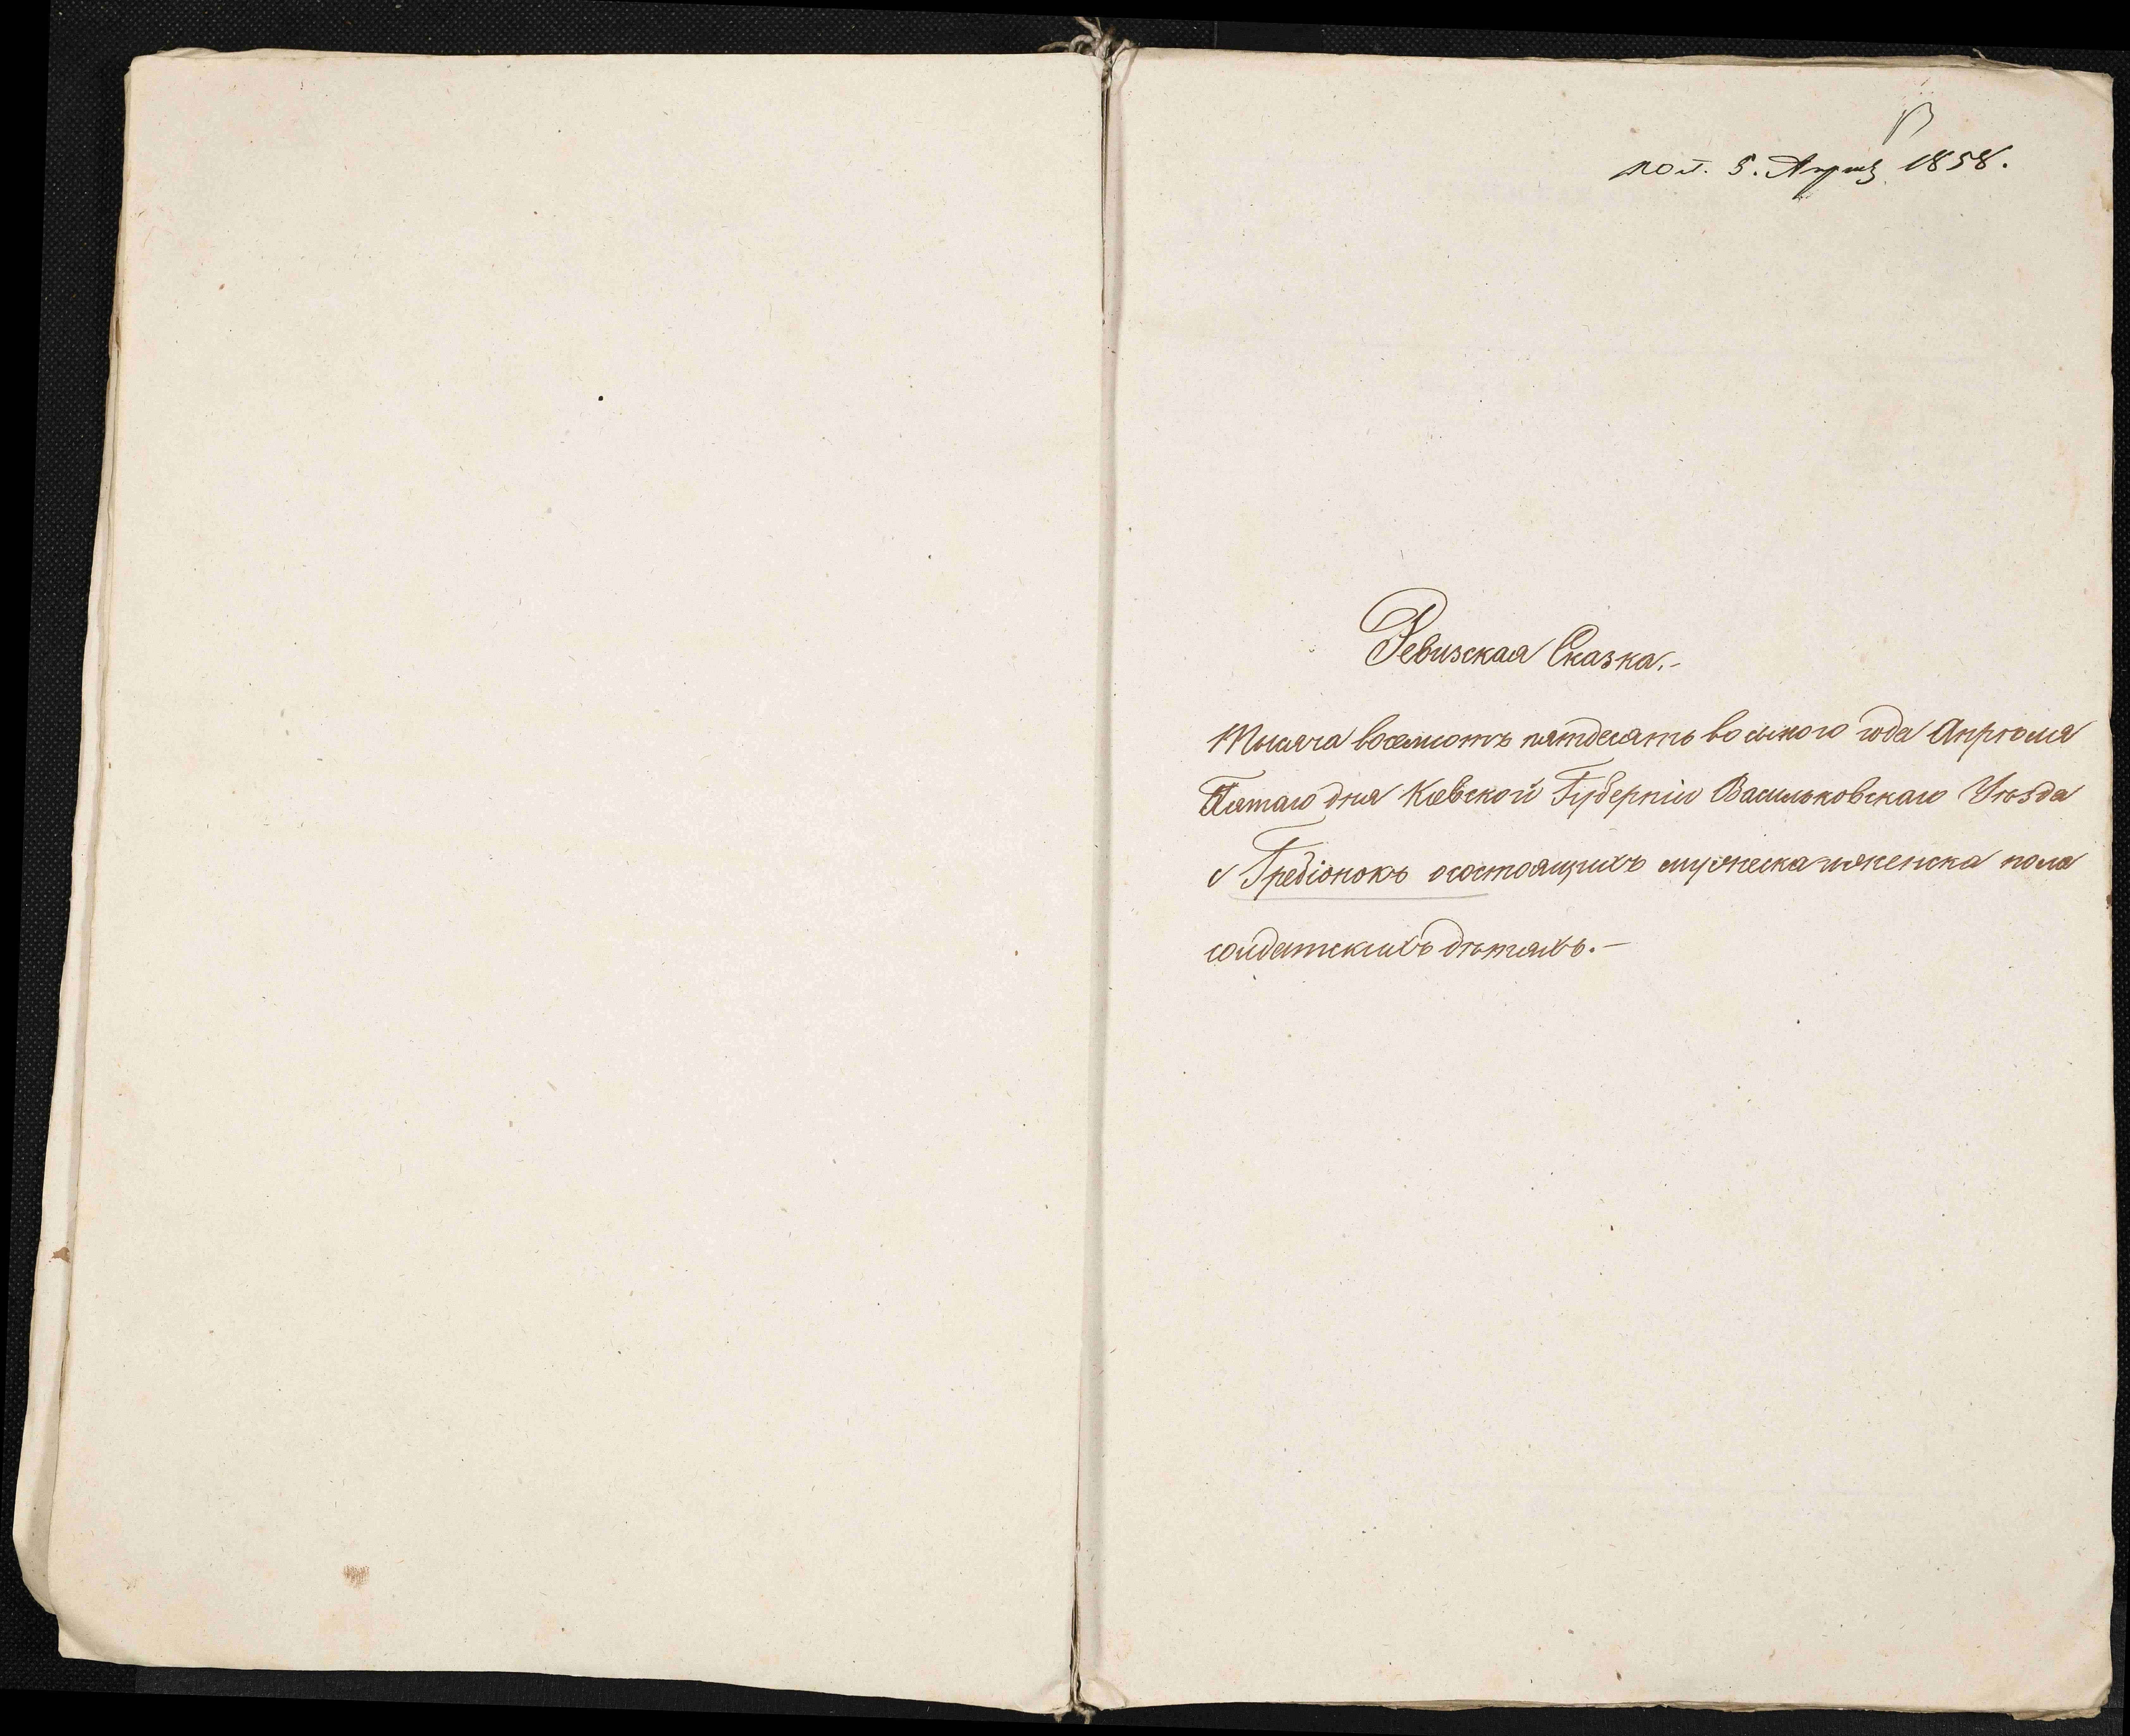 пол. 5. Апрѣ 1858.
Ревизская Сказка.-
Тысяча восемсотъ пятдесять восьмого года Апрѣля
Пятаго дня Кіевской Губерніи Васильковскаго Уѣзда
с Гребіонокъ осостоящихъ мужеска и женска пола
солдатскихъ дѣтяхъ.-